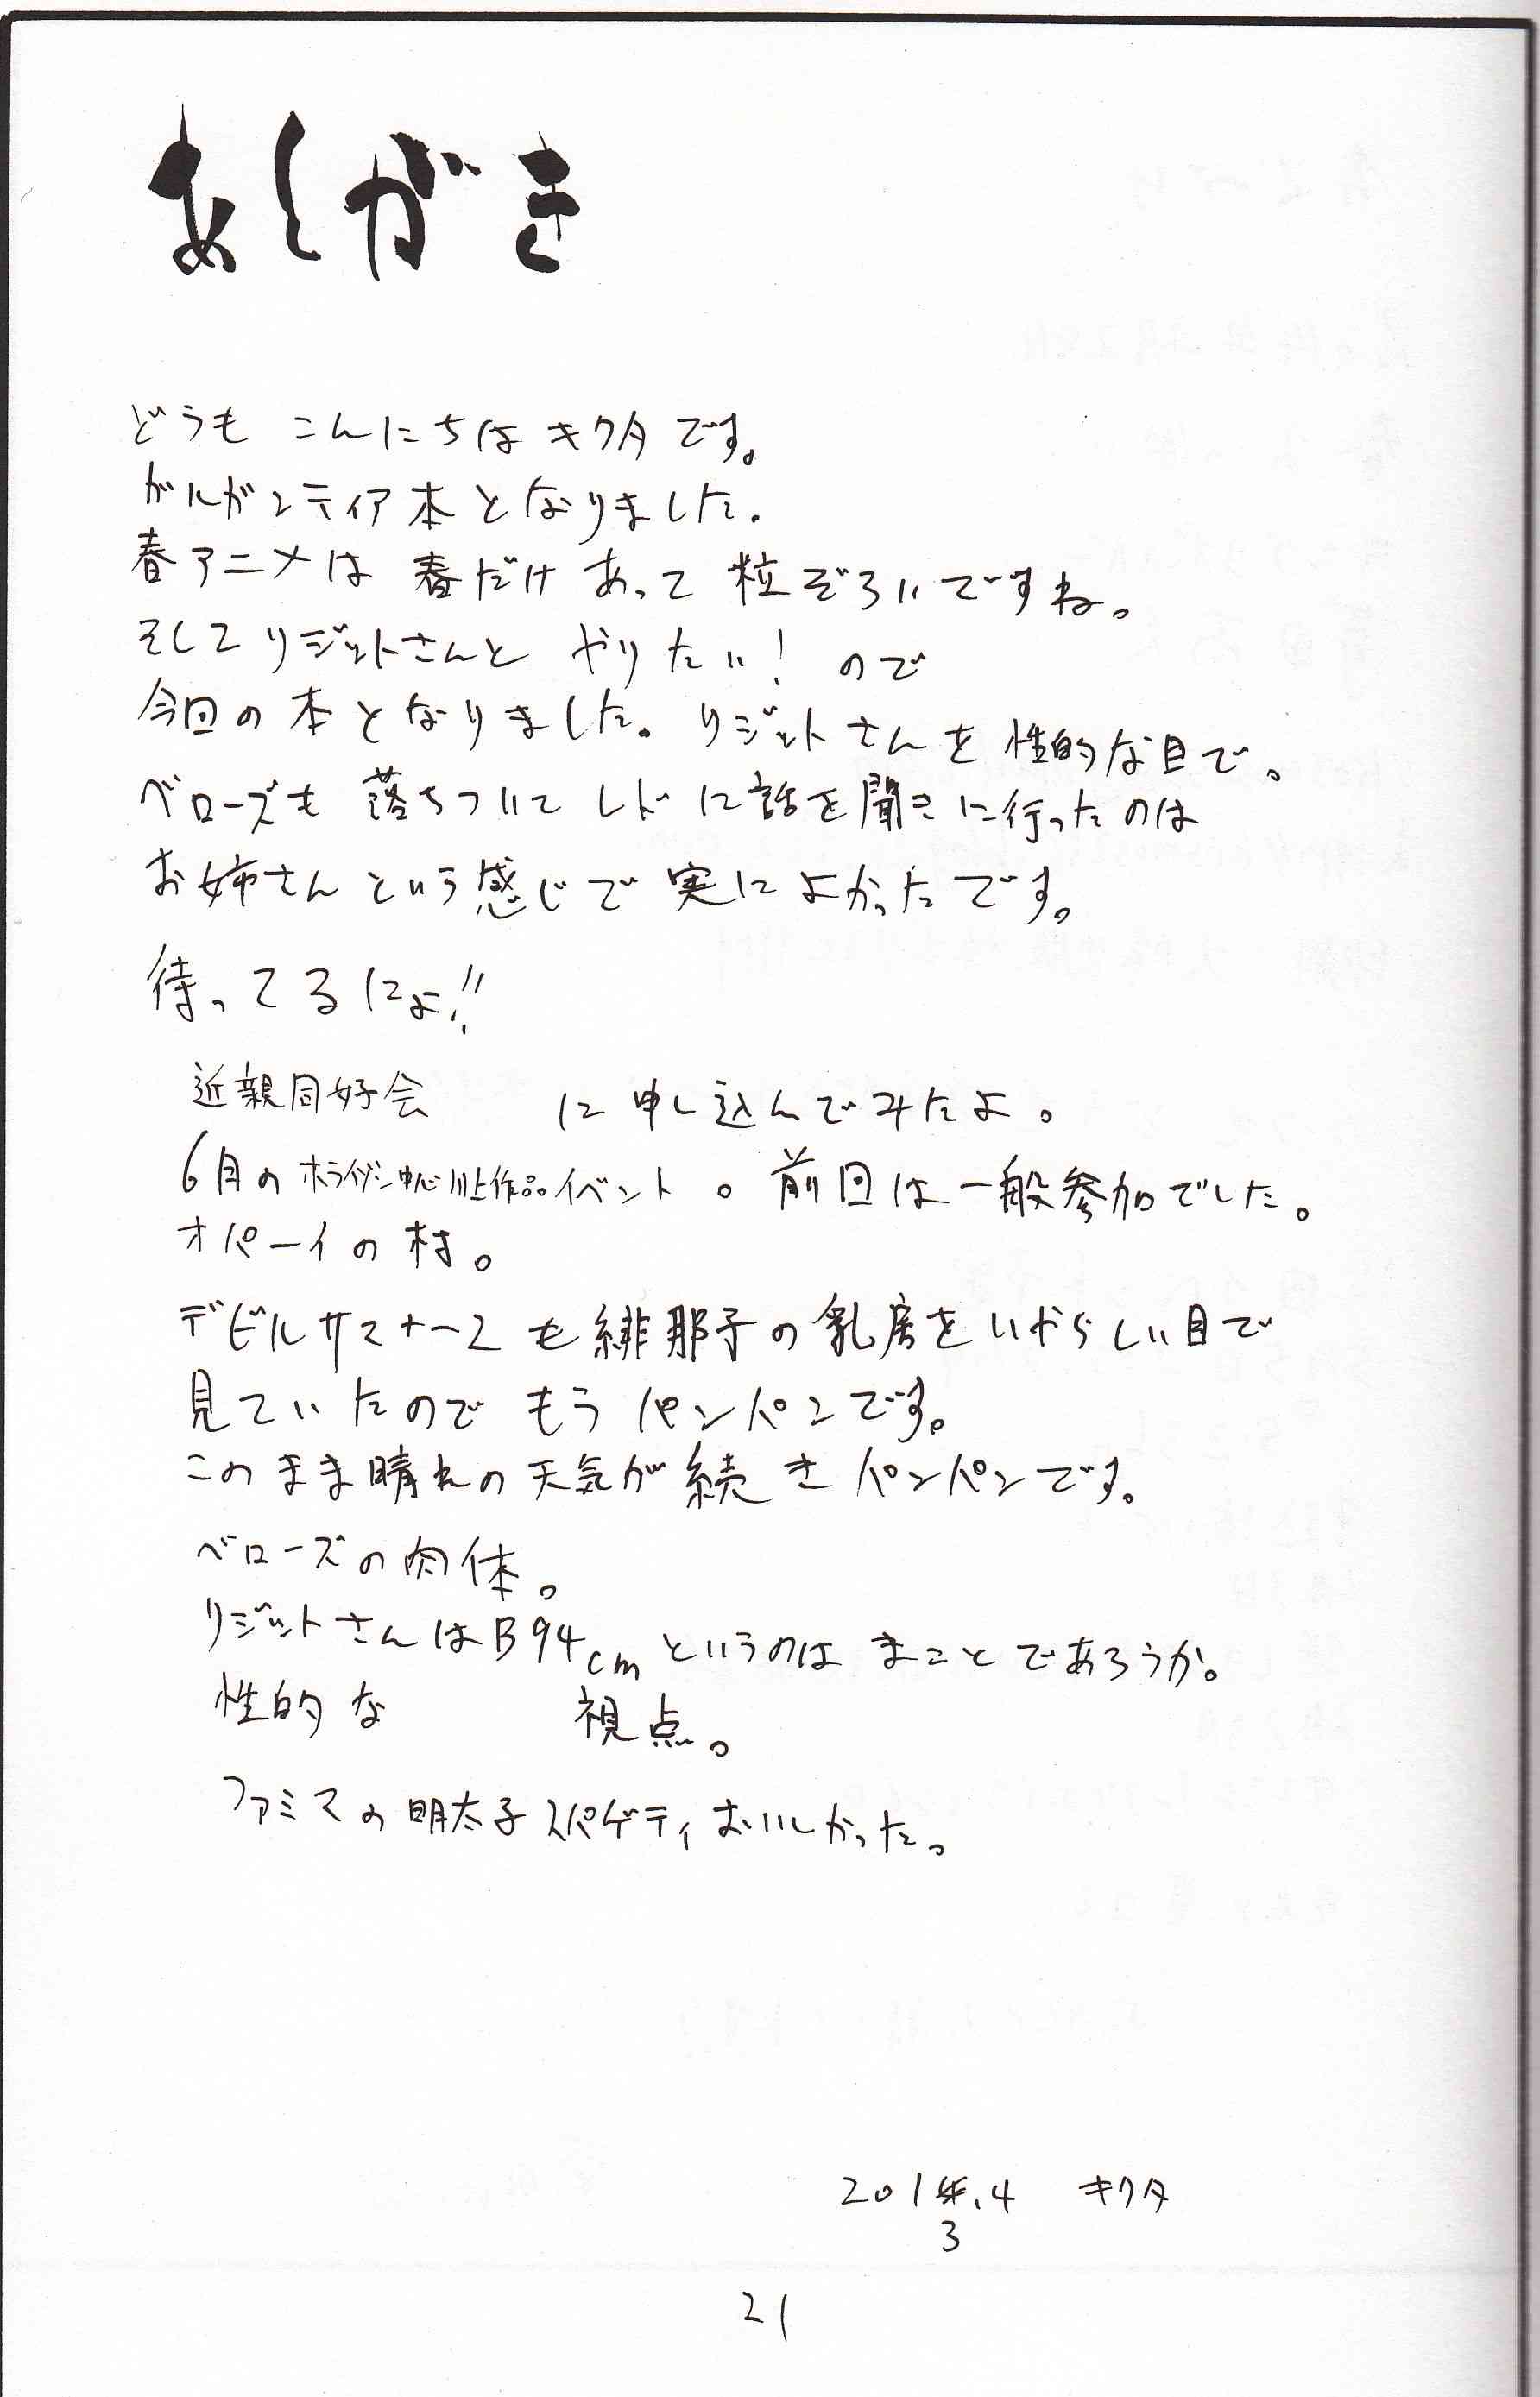 あとがき
どうも こんにちは キクタです。
ガルガンティア本となりました。
春アニメは 春だけあって 粒ぞろいですね。
そして リジットさんと やりたい! ので
今回の本となりました。リジットさんを性的な目で。
ベローズも 落ちついて レドに話を聞きに行ったのは
お姉さんという感じで 実によかったです。
待ってるにょ!!
近親同好会 に申し込んでみたよ。
6月のホライゾン中心川上作品イベント。前回は一般参加でした。
オパーイの村。
デビルサマナー2も緋那子の乳房をいやらしい目で
見ていたので もう パンパンです。
このまま晴れの天気が続き パンパンです。
ベローズの肉体。
リジットさんはB94cmというのは まことであろうか。
性的な 視点。
ファミマの明太子スパゲティおいしかった。
2013.4 キクタ
21